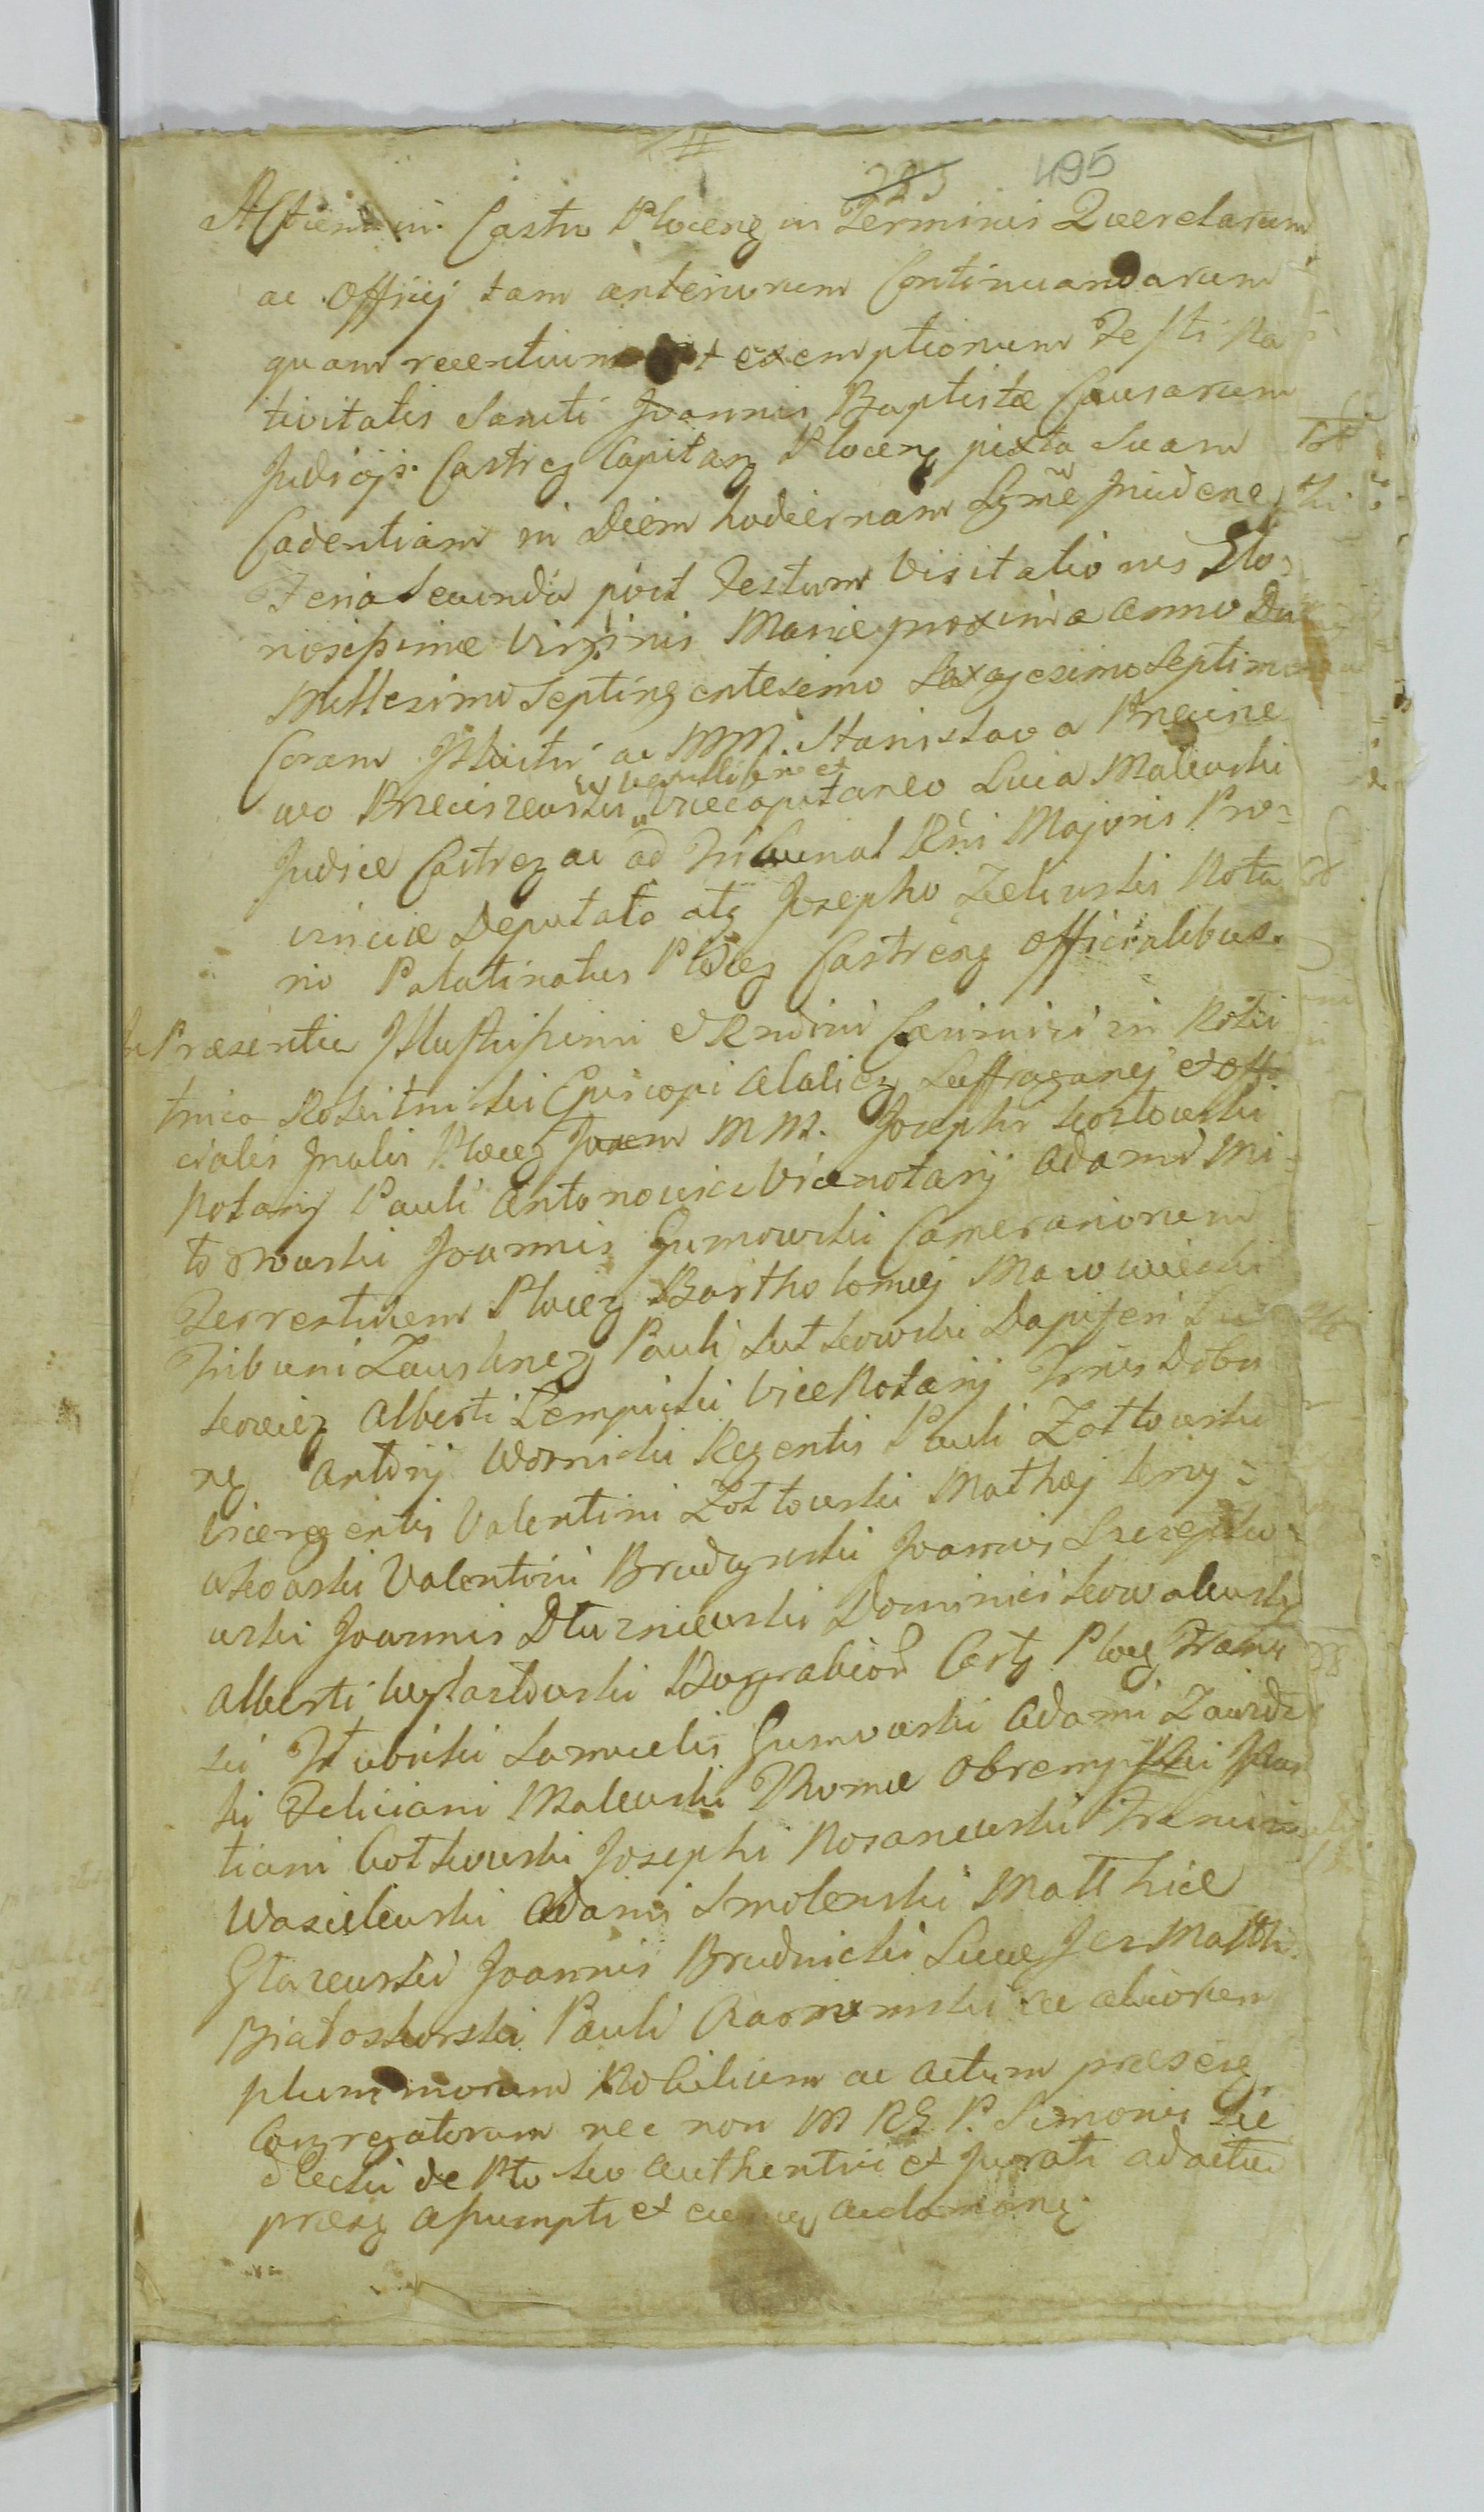 495
Actum in Castro Plocen in Terminis Querelarum
ac Officij tam anteriorum Continuandarum
quam recentium et exemptionum Festi Na
tivitatis Sancti Joannis Baptistæ Causarum
Judicijs Castren Capitan Plocen juxta Suam
Cadentiam in Diem hodiernam inciden
Feria Secunda post Festum Visitationis Glo=
riosissimæ Virginis Mariæ proxima Anno Dni
Millesimo Septingentesimo Sexagesimo Septimo
Coram Illustri ac MM. Stanislao a
wo vexillifero et Vicecapitaneo Luca Malewski
Judice Castren ac ad Tribunal Rni Majoris Pro=
vinciæ Deputato atq Josepho Zieliński Nota
rio Palatinatus Plocen Castren Officialibus.
In Præsentia Illustrissimi et Rndmi Casimiri in Rokit
tnica Rokitnicki Episcopi Suffraganej et Offi
cialis Gnalis Plocen MM. Josephi Kozłowski
Notarij Pauli Antonowicz Vicenotarij Adami Mi=
Joannis Gumowski Camerariorum
Terrestrium Plocen Bartholomej Mazowiecki
Tribuni Zauskrnen Pauli Sutkowski Dapiferi
Alberti Łempicki ViceNotarij Trris Dobri
nen Antonij Wornicki Regentis Pauli Zołtowski
Viceregentis Valentini Zołtowski Mathæj Krzy=
wkowski Valentini Brudzynski Joannis
wski Joannis Dłuzniewski Dominici Kowalewski
Alberti Burgrabior Cast Plocen Franci
sci Samuelis Gumowski Adami Zawidz
ki Feliciani Malewski Thomæ Obrempski
tiani Gotkowski Josephi Franci
Wasilewski Adami Smolenski Matthiæ
Joannis Brudnicki Lucæ
Białoskorski Pauli ac aliorum
plurimorum Nobilium ac actum præsen
Congregatorum nec non M RG P. Simonis Sie
dlecki de authentici et Jurati ad actum
præsen assumpti et